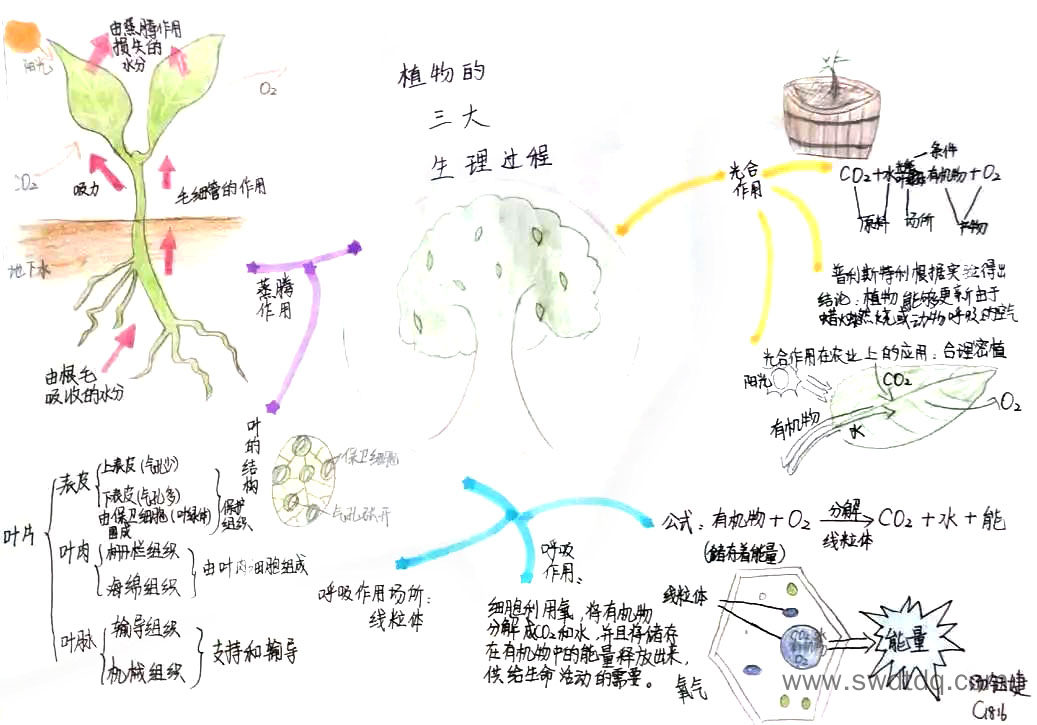 植物的
三大
生理过程
由蒸腾作用
损失的
水分
阳光
O₂
CO₂
吸力
毛细管的作用
地下水
由根毛
吸收的水分
蒸腾
作用
叶的结构
保卫细胞
气孔张开
叶片
表皮
上表皮(气孔少)
下表皮(气孔多)
由保卫细胞(叶绿体)
围成
保护
组织
叶肉
栅栏组织
海绵组织
由叶肉细胞组成
叶脉
输导组织
机械组织
支持和输导
光合
作用
条件
CO₂+水
有机物+O₂
原料
场所
产物
普利斯特利根据实验得出
结论:植物能够更新由于
蜡烛燃烧或动物呼吸的空气
光合作用在农业上的应用:合理密植
阳光
CO₂
O₂
有机物
水
呼吸
作用:
公式:有机物+O₂
分解
线粒体
CO₂+水+能
(储存着能量)
呼吸作用场所:
线粒体
细胞利用氧,将有机物
分解成CO₂和水,并且将储存
在有机物中的能量释放出来,
供给生命活动的需要。
线粒体
氧气
O₂
能量
www.swdtdq.com
C1816